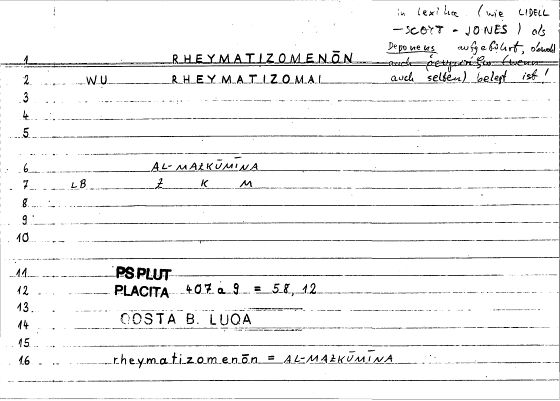 in Lexika (wie LIDELL
-SCOTT-JONES) als
Deponens aufgeführt, obwohl
auch (wenn
auch selten) belegt ist!
1 RHEYMATIZOMENŌN
2 WU RHEYMATIZOMAI
3
4
5
6 AL-MAŻKŪMĪNA
7 LB Ż K M
8
9
10
11 PS PLUT
12 PLACITA 407 a 9 = 58, 12
13
14 QOSTA B. LUQA
15
16 rheymatizomenōn = AL-MAŻKŪMĪNA